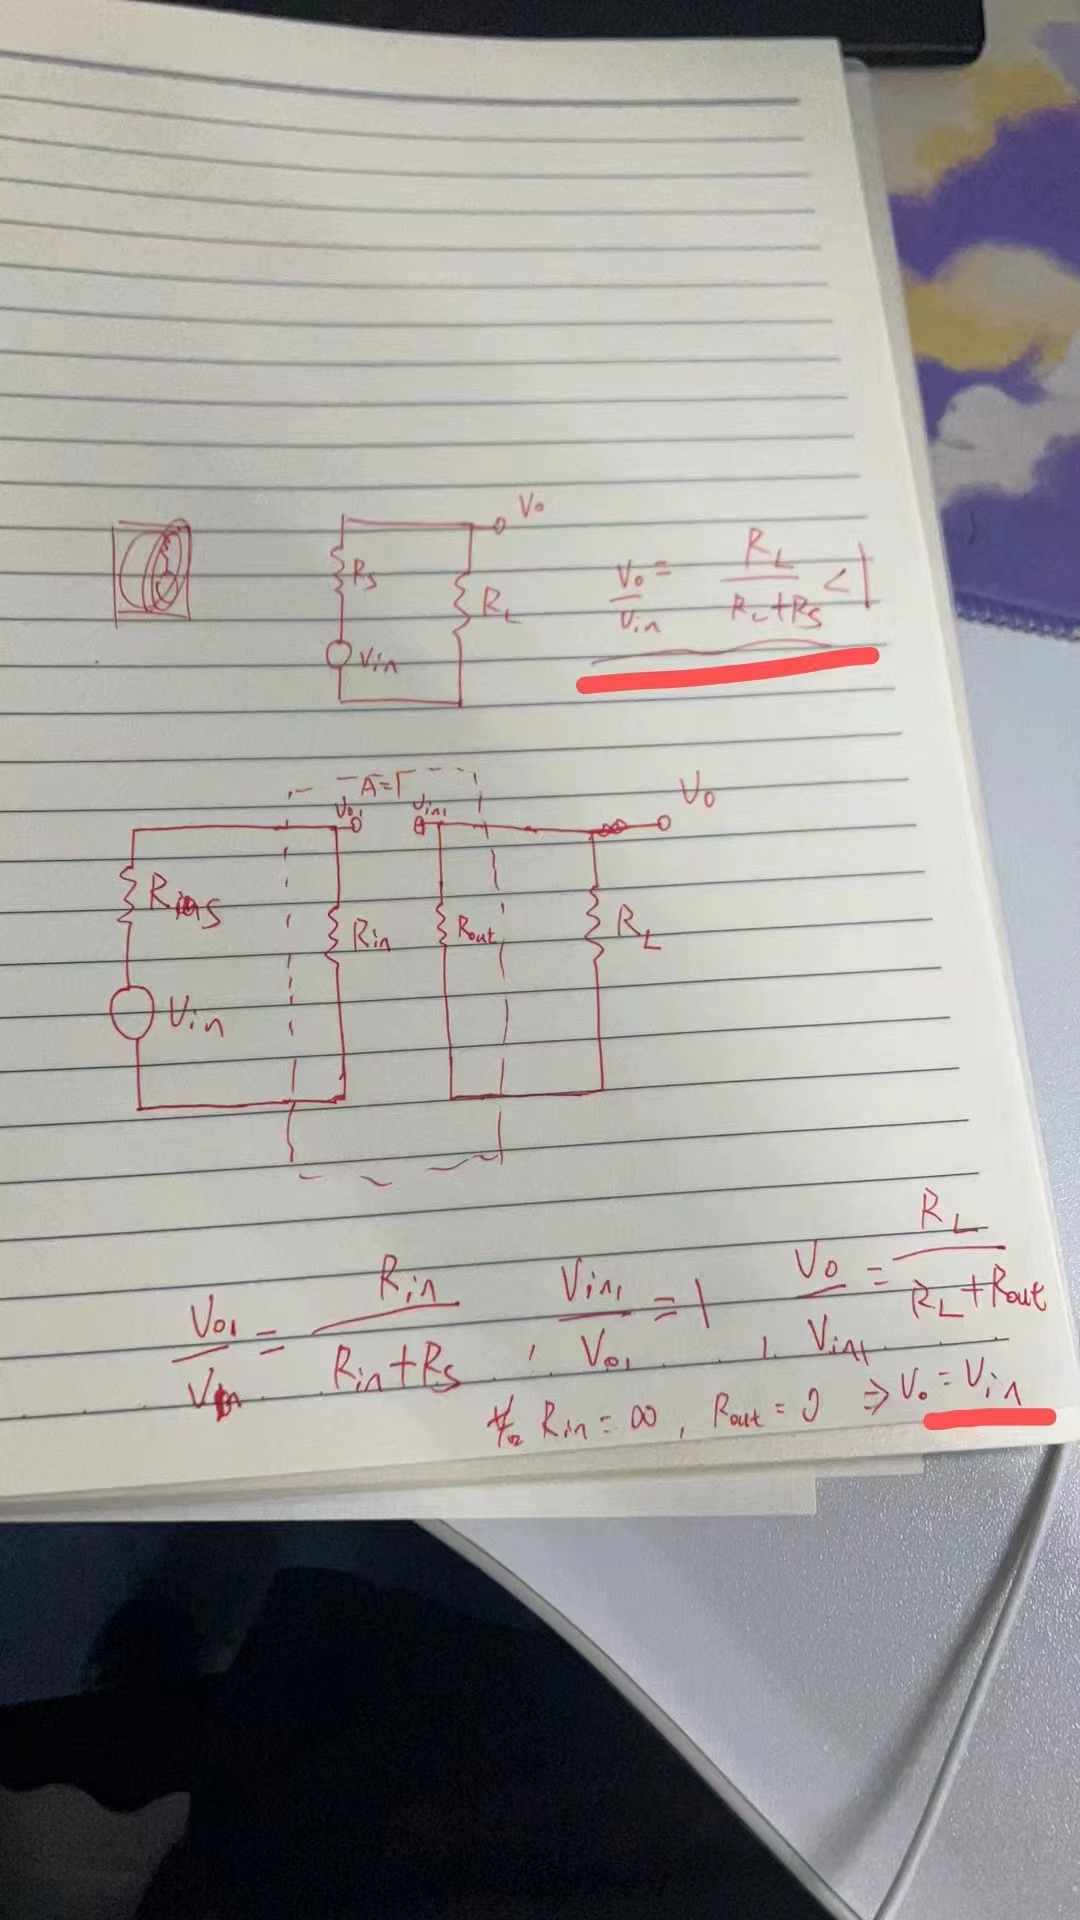 V₀
Rs
R_L
Vin
V₀/Vin = R_L/(R_L+Rs) < 1
A=1
V₀₁
Vin₁
V₀
Rs
Rin
Rout
R_L
Vin
V₀₁/Vin = Rin/(Rin+Rs) , Vin₁/V₀₁ = 1 , V₀/Vin₁ = R_L/(R_L+Rout)
Rin = ∞ , Rout = 0 ⇒ V₀ = Vin